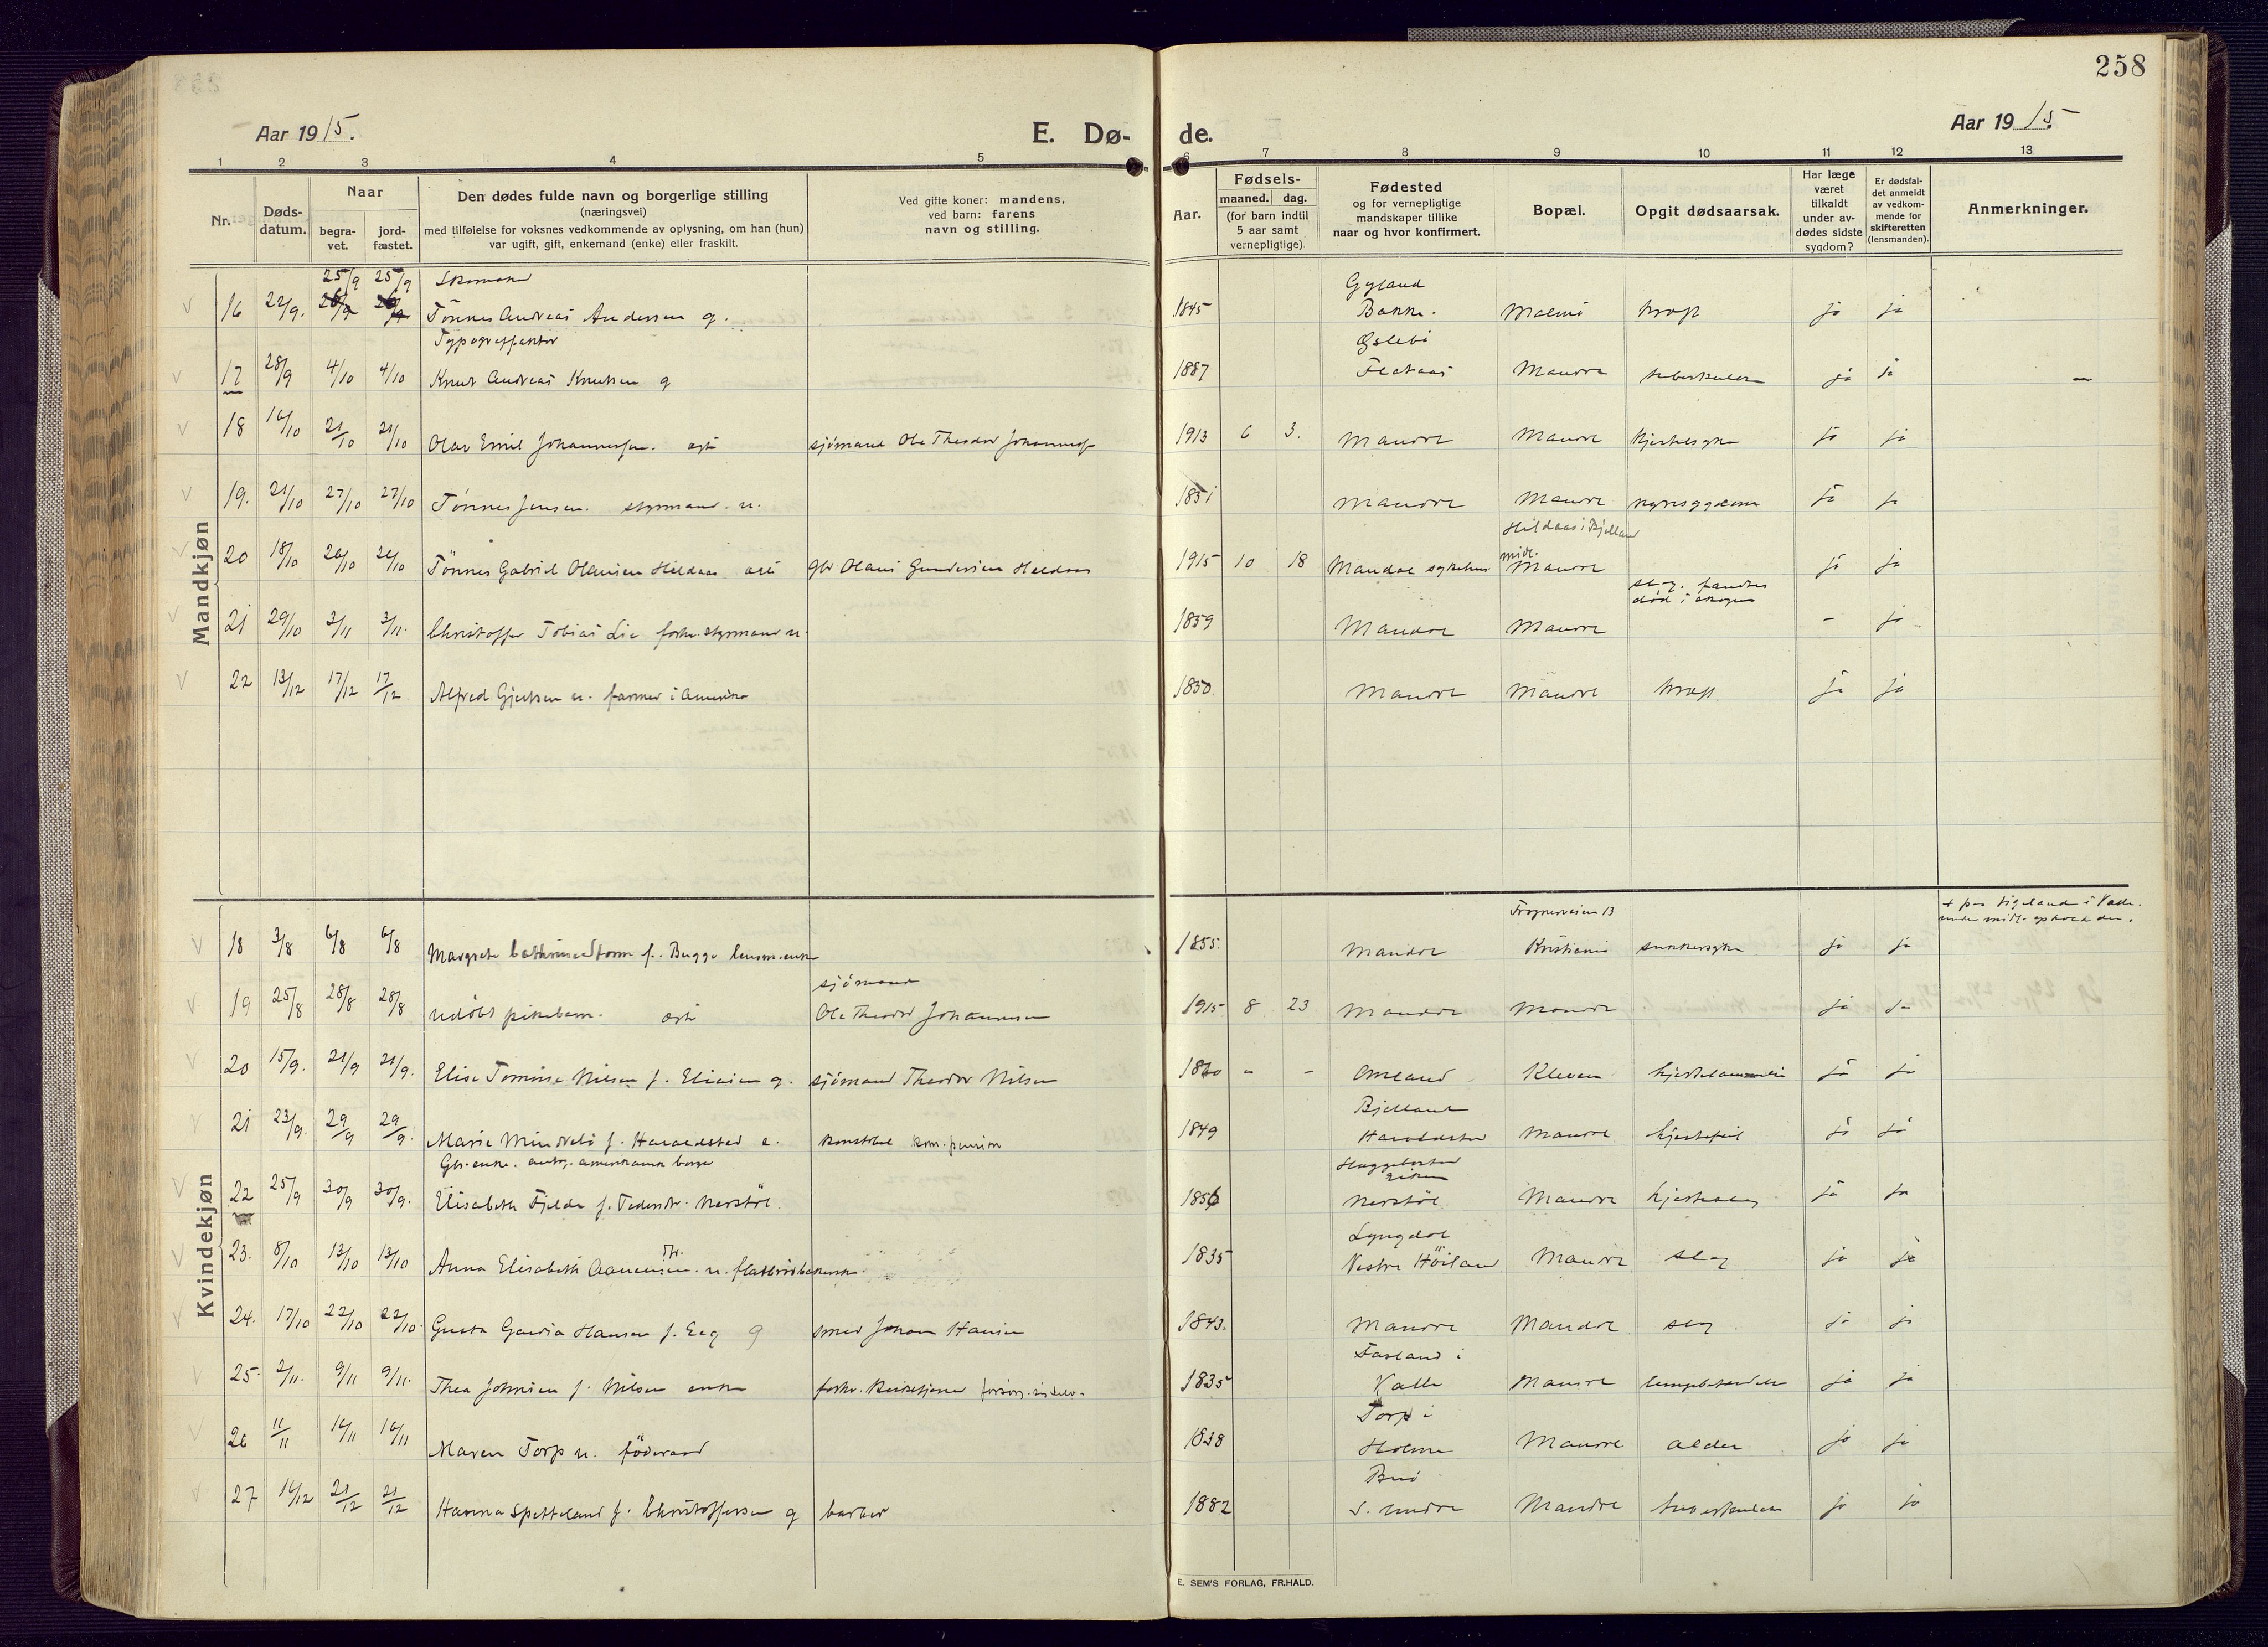 258
Aar 1915.
E. Dø-
de.
Aar 1915.
1 2 3 4 5 6 7 8 9 10 11 12 13
Nr.
Døds-
datum.
Naar
begra-
vet.
jord-
fæstet.
Den dødes fulde navn og borgerlige stilling
(næringsvei)
med tilføielse for voksnes vedkommende av oplysning, om han (hun)
var ugift, gift, enkemand (enke) eller fraskilt.
Ved gifte koner: mandens,
ved barn: farens
navn og stilling.
Aar.
Fødsels-
maaned. dag.
(for barn indtil
5 aar samt
vernepligtige).
Fødested
og for vernepligtige
mandskaper tillike
naar og hvor konfirmert.
Bopæl.
Opgit dødsaarsak.
Har læge
været
tilkaldt
under av-
dødes sidste
sygdom?
Er dødsfal-
det anmeldt
av vedkom-
mende for
skifteretten
(lensmanden).
Anmerkninger.
Mandkjøn
25/9 25/9 Skomaker Gyland
16 22/9. Tönnes Andreas Andersen g. 1845 Bakke. Malmö ja ja
Typograffaktor Øslebö
17 28/9 4/10 4/10 Knut Andreas Knutsen g 1887 Flataas Mandal tuberkulose ja ja
18 16/10 21/10 21/10 Olav Emil Johannessen. egte sjömand Ole Theodor Johannessen 1913 6 3. Mandal Mandal hjertesyke ja ja
19. 21/10 27/10 27/10 Tönnes Jensen. styrmand. u. 1851 Mandal Mandal nyresygdom ja ja
Hildaas i Bjelland
20 18/10 20/10 20/10 Tönnes Gabriel Olausen Hildaas egte gbr Olaus Gundersen Hildaas 1915 10 18 Mandal sykehus midl. Mandal ja ja
slag. fandtes
død i skogen
21 29/10 3/11 3/11. Christoffer Tobias Lie forhv. styrmand u. 1859 Mandal Mandal - ja
22 13/12 17/12 17/12 Alfred Gjertsen u. farmer i Amerika 1850 Mandal Mandal ja ja
Kvindekjøn
Frognerveien 13
18 3/8 6/8 6/8 Margrete Cathrine Storm f. Bugge lensm.enke 1855. Mandal Kristiania sukkersyke ja ja
19 25/8 28/8 28/8 udöbt pikebarn. egte sjömand
Ole Theodor Johannessen 1915 8 23 Mandal Mandal ja ja
20 15/9. 21/9 21/9. Elise Tomine Nilsen f. Eliasen g. sjömand Theodor Nilsen 1870 - - Omland Kleven hjertelammelse ja ja
Bjelland
21 23/9. 29/9 29/9. Marie Mindrebö f. Haraldstad e. konstabel kom. pension 1849 Haraldstad Mandal hjertefeil ja ja
Gbr. enke. antog. amerikansk borger Hæggebostad
Eiken
22 25/9 30/9 30/9. Elisabeth Fjelde f. Pedersdtr. Nerstöl 1856 Nerstöl Mandal hjerteslag ja ja
Lyngdal
23. 8/10 13/10 13/10 Anna Elisabeth Aanensen dtr. u. flatbrödbakerske. 1835 Vestre Höiland Mandal slag ja ja
24. 17/10 22/10 22/10. Gusta Gardia Hansen f. Eeg g smed Johan Hansen 1843. Mandal Mandal slag ja ja
Fasland i
25. 2/11. 9/11 9/11. Thea Johnsen f. Nilsen enke 1835 Valle Mandal lungebetændelse ja ja
Torp i
26 11/11 16/11 16/11 Maren Torp u. föderaad 1838 Holme Mandal alder ja ja
27 16/12 21/12 21/12 Hanna Spetteland f. Christoffersen g barber 1882 S. Undal Mandal tuberkulose ja ja
E. SEM'S FORLAG, FR.HALD.